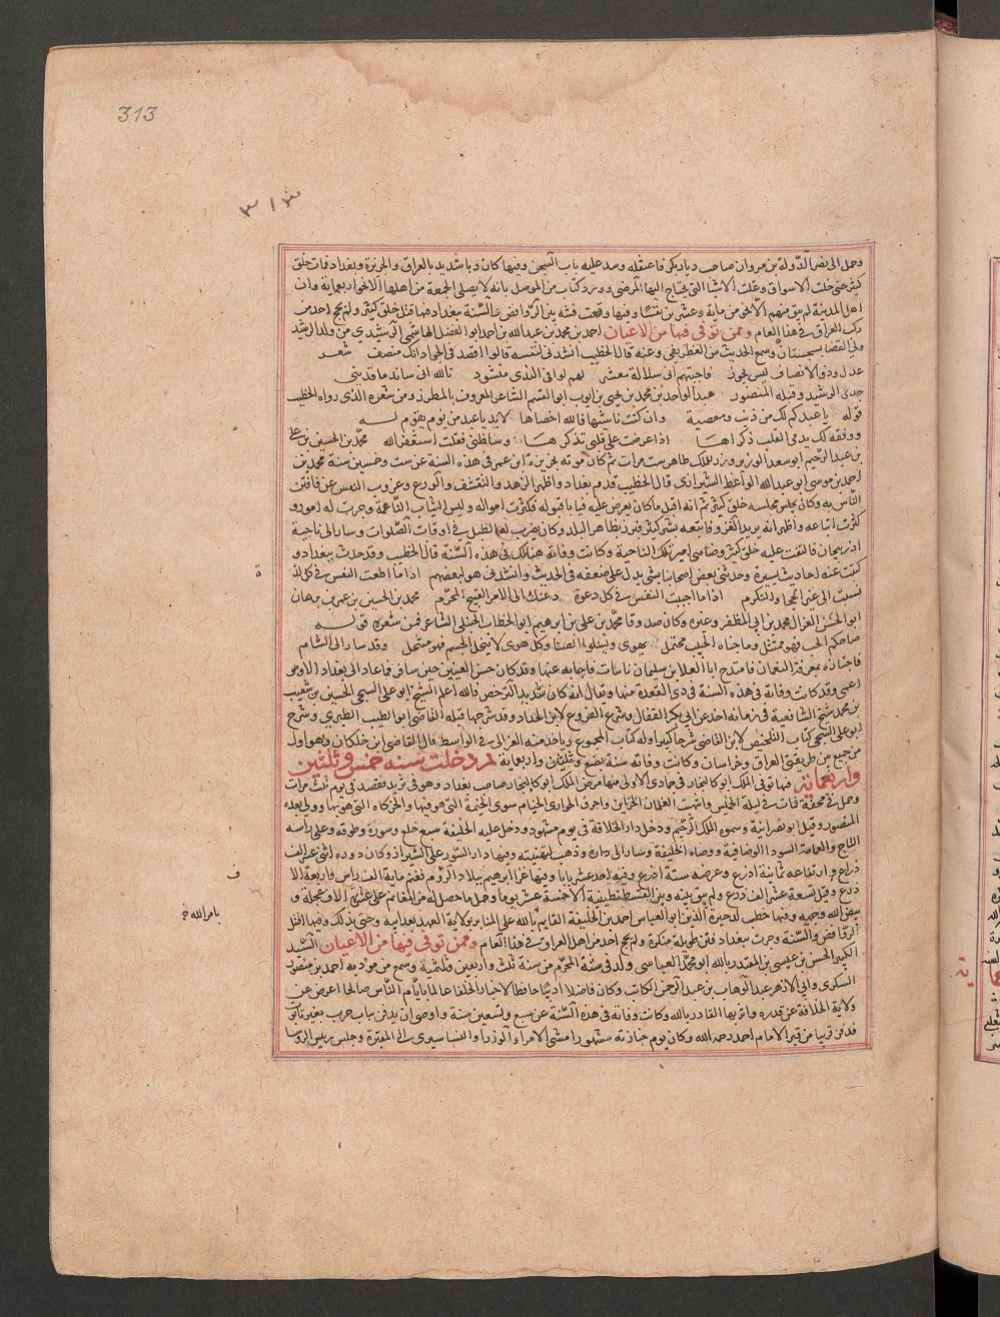 313
٣١٣
وحمل الى نصر الدولة بن مروان صاحب ديار بكر فاعتقله وسد عليه باب السجن وفيها كان وباء شديد بالعراق والجزيرة وبغداد فات خلق
كثير حتى خلت الاسواق وغلت الاشيا التى يحتاج اليها المرضى وورد كتاب من الموصل بانه لا يصلى الجمعة من اهلها الا نحو اربعماية وان
اهل المدينة لم يبق منهم الا نحو من ماية وعشرين نفسا وفيها وقعت فتنة بين الروافض والسنة ببغداد فيها قتل خلق كثير ولم يحج احد من
ركب العراق فى هذا العام وممن توفى فيها من الاعيان احمد بن محمد بن عبد الله بن احمد ابو الفضل الهاشمى الرشيدى من ولد الرشيد
ولى القضا بسجستان وسمع الحديث من الغطريفى وعنه قال الخطيب انشدنى لنفسه قالوا اقصد فى الجود انك منصف شعر
عدل وذو الانصاف ليس يجور فاجبتهم انى سلالة معشر لهم لوا فى الندى منشود تالله انى ساند ما قد بنى
جدى الرشيد وقبله المنصور عبد الواحد بن محمد بن يحيى بن ايوب ابو القسم الشاعر المعروف بالمطرز ومن شعره الذى رواه الخطيب
قوله يا عبد كم لك من ذنب ومعصية وان كنت ناسيها فالله احصاها لا بد يا عبد من يوم يقوم له
ووقفة لك يدمى القلب ذكراها اذا عرضت على قلبى تذكرها وساظنى فقلت استغفر الله محمد بن الحسين بن على
بن عبد الرحيم ابو سعد الوزير وزر للملك طاهر ست مرات ثم كان موته بجزيرة ابن عمر فى هذه السنة عن ست وخمسين سنة محمد بن
احمد بن موسى ابو عبد الله الواعظ الشيرازى قال الخطيب قدم بغداد واظهر الزهد والتقشف والورع وعزوب النفس عن فافتتن
الناس به وكان يحضر مجلسه خلق كثير ثم انه اقبل ما كان يعرض عليه فيابا قبوله فكثرت امواله ولبس الثياب الناعمة وجرت له امور و
كثرت اتباعه واظهر انه يريد الغزو فاتبعه بشر كثير فبرز بظاهر البلد وكان يضرب له الطبل فى اوقات الصلوات وسار الى ناحية
اذربيجان فالتفت عليه خلق كثير وضاهى امير تلك الناحية وكانت وفاته هنالك فى هذه السنة قال الخطيب وقد حدث ببغداد و
كتبت عنه احاديث يسيرة وحدثنى بعض اصحابنا بشى يدل على ضعفه فى الحديث وانشدنى هو لبعضهم اذا ما اطعت النفس فى كل لذة
نسبت الى غير الحجا والتكرم اذا ما اجبت النفس فى كل دعوة دعتك الى الامر القبيح المحرم محمد بن الحسين بن عمر بن برهان
ابو الحسن الغزال محمد بن ابى المظفر وغيره وكان صدوقا محمد بن على بن ابرهيم ابو الخطاب الحنبلى الشاعر فمن شعره قوله
ما حكم الحب فهو ممتثل وما جناه الحبيب محتمل يهوى ويشكو الضنا وكل هوى لا ينحل الجسم فهو منتحل وقد سار الى الشام
فاجتاز بمعرة النعمان فامتدح ابا العلا بن سليمان بابيات فاجابه عنها وقد كان حسن العينين حين سافر فما عاد الى بغداد الا وهو
اعمى وقد كانت وفاته فى هذه السنة فى ذى القعدة منها ويقال انه كان شديد الترفض فالله اعلم الشيخ ابو على السبحى الحسين بن شعيب
بن محمد شيخ الشافعية فى زمانه اخذ عن ابى بكر القفال وشرح الفروع لابن الحداد وقد شرحها قبله القاضى ابو الطيب الطبرى وشرح
ابو على السبحى كتاب التلخيص لابن القاضى شرحا كبيرا وله كتاب المجموع وياخذ منه الغزالى فى الواسط قال القاضى ابن خلكان وهو اول
من جمع بين طريقتى العراق وخراسان وكانت وفاته سنة بضع وثلثين واربعماية ثم دخلت سنه خمس وثلثين
واربعماية فيها توفى الملك ابو كاليجار فى جمادى الاولى منها مرض الملك ابو كاليجار صاحب بغداد وهو فى بريه فقصد فى يوم ثلث مرات
وحمل فى محفة فمات فى ليلة الخميس وانتهبت الغلمان الخزاين واحرق الجوارى الخيام سوى الخيمة التى هو فيها والخركاه التى هو بها وولى بعده
المنصور وقيل ابو نصر ابنه وسموه الملك الرحيم ودخل دار الخلافة فى يوم مشهود ودخل عليه الخليفة سبع خلع وسوره وطوقه وعلى راسه
التاج والعمامة السودا الوضافية ووصاه الخليفة وسار الى داره وذهب لتهنيته وفيها دار السور على شيراز وكان دوره اثنى عشر الف
ذراع وارتفاعه ثمانية اذرع وعرضه ستة اذرع وفيه احد عشر بابا وفيها غزا ابرهيم بلاد الروم فغنم ماية الف راس واربعة الاف
ذرع وقيل تسعة عشر الف ذرع ولم يبق بينه وبين القسطنطينية الا خمسة عشر يوما وحمل ما حصل له من الغنايم على عشرة الاف عجلة و
بيض الله وجهه وفيها خطب لذخيرة الدين ابو العباس احمد بن الخليفة القايم بالله على المنابر بولاية العهد بعد ابيه وحيى بذلك وفيها اقتتل
الروافض والسنة وجرت ببغداد فتن طويلة منكرة ولم يحج احد من اهل العراق فى هذا العام وممن توفى فيها من الاعيان السيد
الكبير الحسن بن عيسى بن المقتدر بالله ابو محمد العباسى ولد فى المحرم من سنة ثلث واربعين وثلثمية وسمع من مودبه احمد بن منصور
السكرى وابى الازهر عبد الوهاب بن عبد الرحمن الكاتب وكان فاضلا دينا حافظا لاخبار الخلفا عالما بايام الناس صالحا اعرض عن
ولاية الخلافة عن قدره واثر بها القادر بالله وكانت وفاته فى هذه السنة عن سبع وتسعين سنة واوصى ان يدفن بباب حرب بغير تابوت
فدفن قريبا من قبر الامام احمد رحمه الله وكان يوم جنازته مشهورا مشى الامراء والوزراء والبساسيرى الى المقبرة وجلس رييس الروسا
ة
ف
بامر الله خ